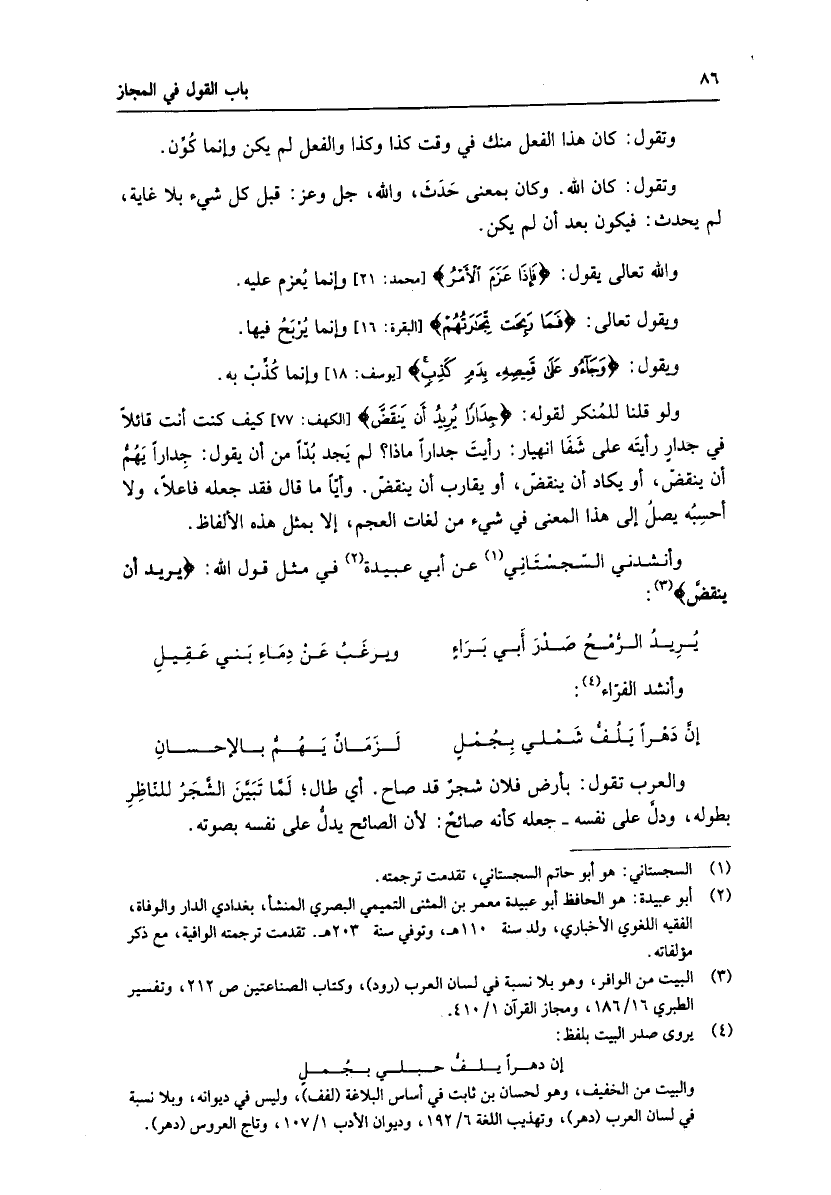 ٨٦
باب القول في المجاز
وتقول: كان هذا الفعل منك في وقت كذا وكذا والفعل لم يكن وإنما كُوِّن.
وتقول: كان الله. وكان بمعنى حَدَثَ، والله، جل وعز: قبل كل شيء بلا غاية،
لم يحدث: فيكون بعد أن لم يكن.
والله تعالى يقول: ﴿فَإِذَا عَزَمَ ٱلْأَمْرُ﴾ [محمد: ٢١] وإنما يُعزم عليه.
ويقول تعالى: ﴿فَمَا رَبِحَت تِّجَٰرَتُهُمْ﴾ [البقرة: ١٦] وإنما يُرْبَحُ فيها.
ويقول: ﴿وَجَآءُو عَلَىٰ قَمِيصِهِۦ بِدَمٍ كَذِبٍۚ﴾ [يوسف: ١٨] وإنما كُذِّبْ به.
ولو قلنا للمُنكر لقوله: ﴿جِدَارًا يُرِيدُ أَن يَنقَضَّ﴾ [الكهف: ٧٧] كيف كنت أنت قائلاً
في جدارٍ رأيتَه على شَفَا انهيار: رأيتَ جداراً ماذا؟ لم يَجد بُدّاً من أن يقول: جِداراً يَهُمُّ
أن ينقضّ، أو يكاد أن ينقضّ، أو يقارب أن ينقضّ. وأيّاً ما قال فقد جعله فاعلاً، ولا
أحسِبُه يصلُ إلى هذا المعنى في شيء من لغات العجم، إلا بمثل هذه الألفاظ.
وأنشدني السّجسْتَاني(١) عن أبي عبيدة(٢) في مثل قول الله: ﴿يريد أن
ينقضّ﴾(٣):
يُرِيدُ الرُّمْحُ صَدْرَ أَبي بَرَاءٍ ويرغَبُ عَنْ دِمَاءِ بَني عَقِيلِ
وأنشد الفرّاء(٤):
إنَّ دَهْراً يَلُفُّ شَمْلي بِجُمْلٍ لَزَمَانٌ يَهُمُّ بالإحسانِ
والعرب تقول: بأرض فلان شجرٌ قد صاح. أي طال؛ لَمَّا تَبَيَّنَ الشَّجَرُ للنّاظِرِ
بطوله، ودلَّ على نفسه ـ جعله كأنه صائحٌ: لأن الصائح يدلُّ على نفسه بصوته.
(١) السجستاني: هو أبو حاتم السجستاني، تقدمت ترجمته.
(٢) أبو عبيدة: هو الحافظ أبو عبيدة معمر بن المثنى التميمي البصري المنشأ، بغدادي الدار والوفاة،
الفقيه اللغوي الأخباري، ولد سنة ١١٠هـ، وتوفي سنة ٢٠٣هـ. تقدمت ترجمته الوافية، مع ذكر
مؤلفاته.
(٣) البيت من الوافر، وهو بلا نسبة في لسان العرب (رود)، وكتاب الصناعتين ص ٢١٢، وتفسير
الطبري ١٨٦/١٦، ومجاز القرآن ٤١٠/١.
(٤) يروى صدر البيت بلفظ:
إن دهراً يلفُّ حبلي بجُملٍ
والبيت من الخفيف، وهو لحسان بن ثابت في أساس البلاغة (لفف)، وليس في ديوانه، وبلا نسبة
في لسان العرب (دهر)، وتهذيب اللغة ١٩٢/٦، وديوان الأدب ١٠٧/١، وتاج العروس (دهر).